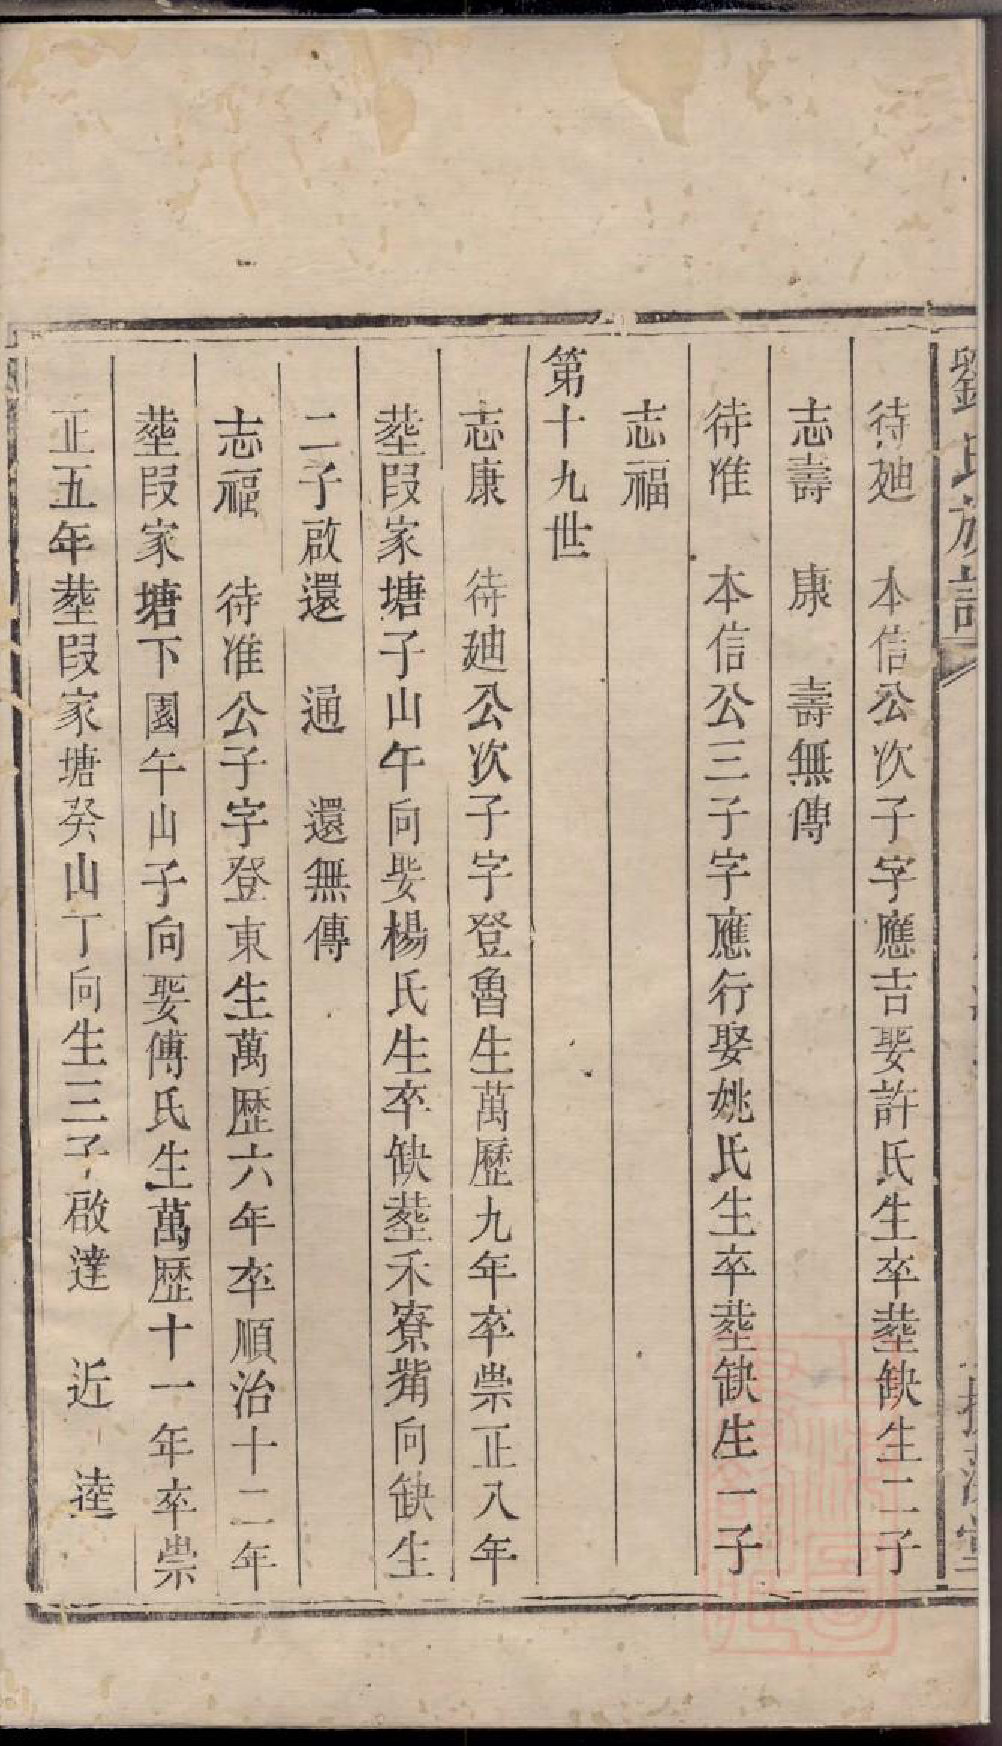 劉氏族譜
待廸 本信公次子字應吉娶許氏生卒塟缺生二子
志壽 康 壽無傳
待准 本信公三子字應行娶姚氏生卒塟缺生一子
志福
第十九世
志康 待廸公次子字登魯生萬歷九年卒崇正八年
塟段家塘子山午向娶楊氏生卒缺塟禾寮背向缺生
二子啟還 通 還無傳
志福 待准公子字登東生萬歷六年卒順治十二年
塟段家塘下園午山子向娶傅氏生萬歷十一年卒崇
正五年塟段家塘癸山丁向生三子啟達 近 逵